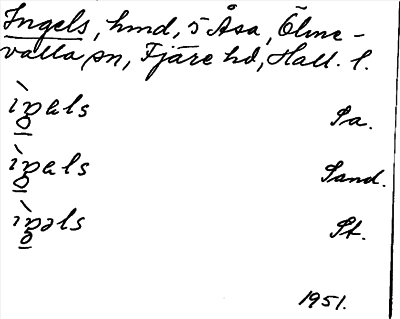 Ingels, hmd, 5 Åsa, Ölme-
valla sn, Fjäre hd, Hall. l.
ìgels Sa.
ìgels Sand.
ìgəls St.
1951.